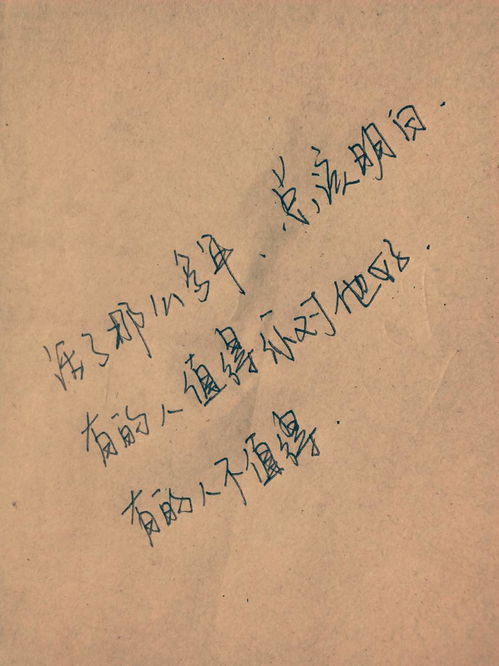 活了那么多年、总该明白.
有的人值得你对他好.
有的人不值得.